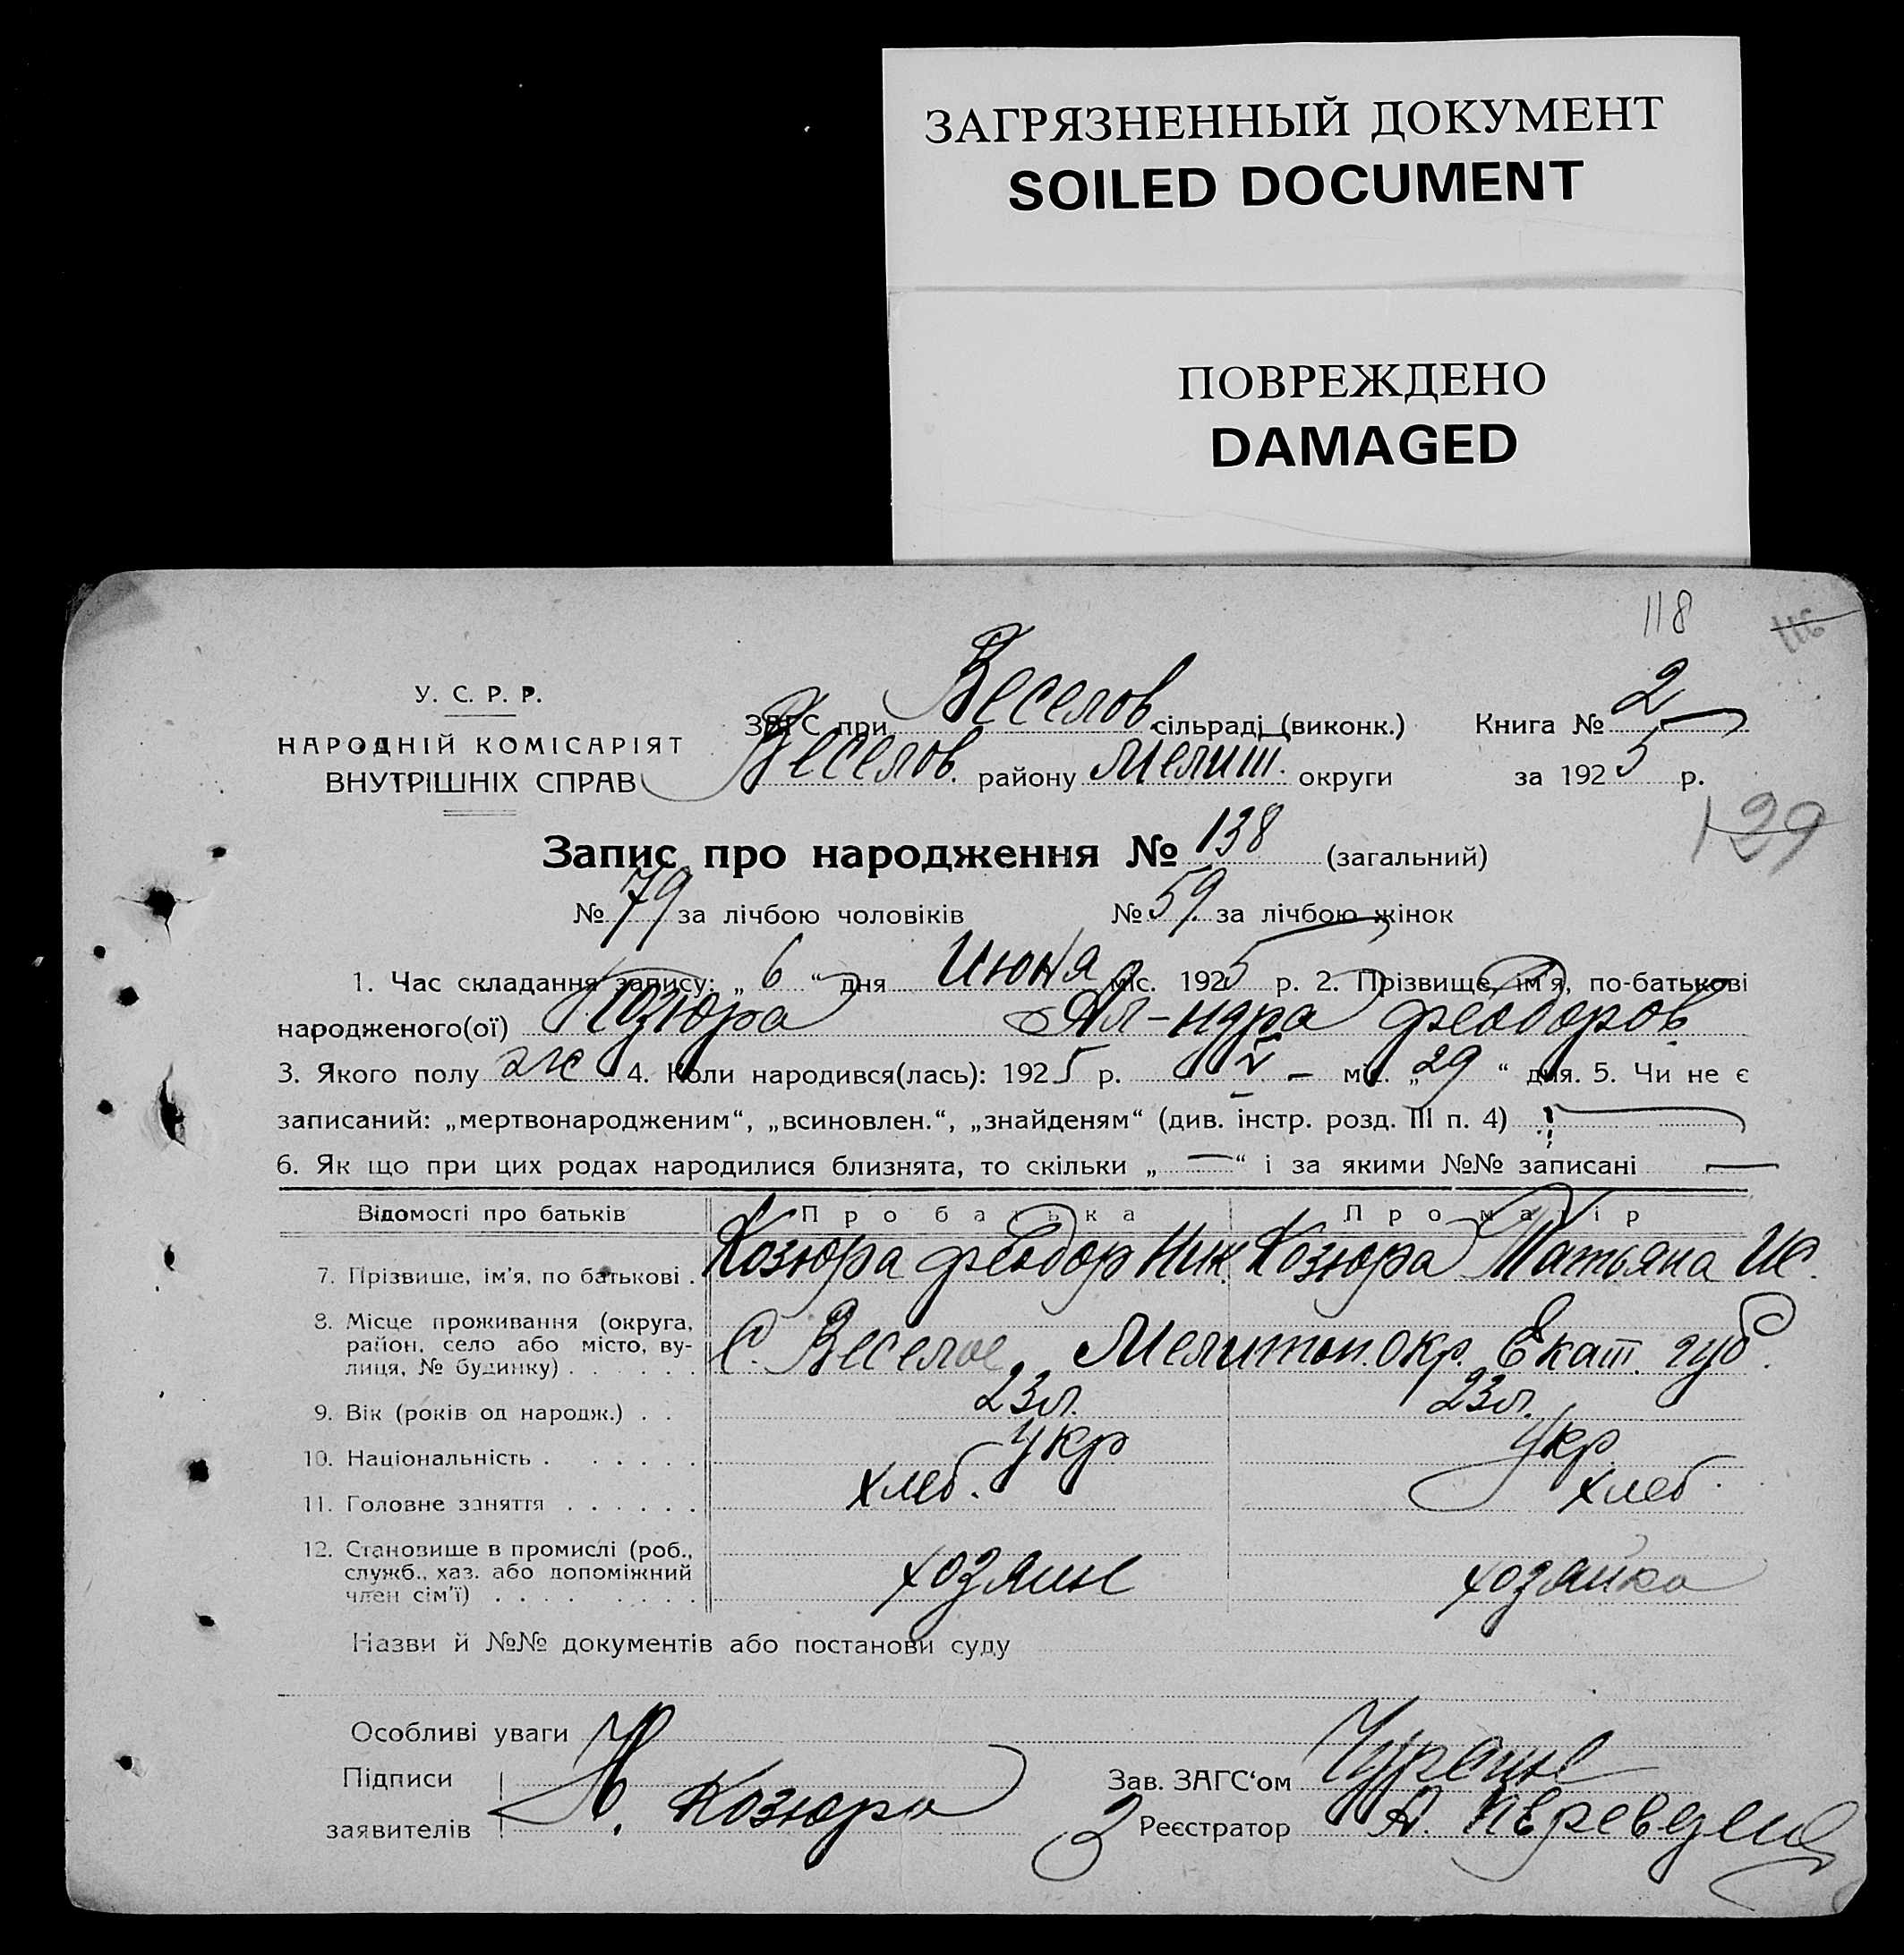 ЗАГРЯЗНЕННЫЙ ДОКУМЕНТ
SOILED DOCUMENT
ПОВРЕЖДЕНО
DAMAGED
118
116
У. С. Р. Р.
НАРОДНІЙ КОМІСАРІЯТ
ВНУТРІШНІХ СПРАВ
ЗАГС при Веселов сільраді (виконк.) Книга № 2
Веселов. району Мелит. округи за 1925 р.
129
Запис про народження № 138 (загальний)
№ 79 за лічбою чоловіків № 59 за лічбою жінок
1. Час складання запису: „ 6 “ дня Июня міс. 1925 р. 2. Прізвище, ім'я, по-батькові
народженого(ої) Козюра Ал-ндра Феодоров.
3. Якого полу ж 4. Коли народився(лась): 1925 р. V – міс. „29 “ дня. 5. Чи не є
записаний: „мертвонародженим“, „всиновлен.“, „знайденям“ (див. інстр. розд. III п. 4)
6. Як що при цих родах народилися близнята, то скільки „ — “ і за якими №№ записані —
Відомості про батьків Про батька Про матір
7. Прізвище, ім'я, по батькові . Козюра Феодор Ник. Козюра Татьяна
8. Місце проживання (округа,
район, село або місто, ву-
лиця, № будинку) . . . . . . С. Веселое, Мелитоп. окр. Екат. губ.
9. Вік (років од народж.) . . 23 л. 23 л.
10. Національність . . . . . . укр укр.
11. Головне заняття . . . . . . хлеб. хлеб.
12. Становище в промислі (роб.,
служб., хаз. або допоміжний
член сім'ї) . . . . . . . . хозяин хозяйка
Назви й №№ документів або постанови суду
Особливі уваги
Підписи
заявителів Н. Козюра
Зав. ЗАГС'ом
Реєстратор